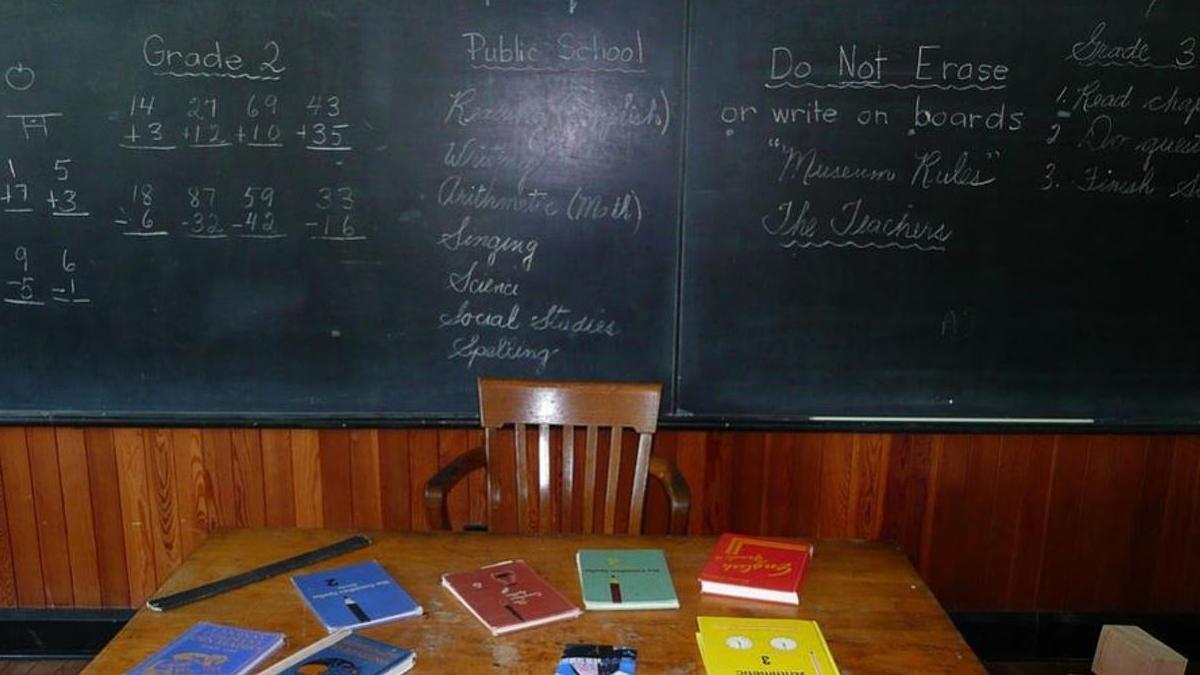 Grade 2
14 27 69 43
+3 +12 +10 +35
18 87 59 33
-6 -32 -42 -16
1 5
+7 +3
9 6
-5 -1
Public School
Reading (English)
Writing
Arithmetic (Math)
Singing
Science
Social Studies
Spelling
Do Not Erase
or write on boards
"Museum Rules"
The Teachers
Grade 3
1. Read
2 Do
3. Finish
2
English
3
Arithmetic